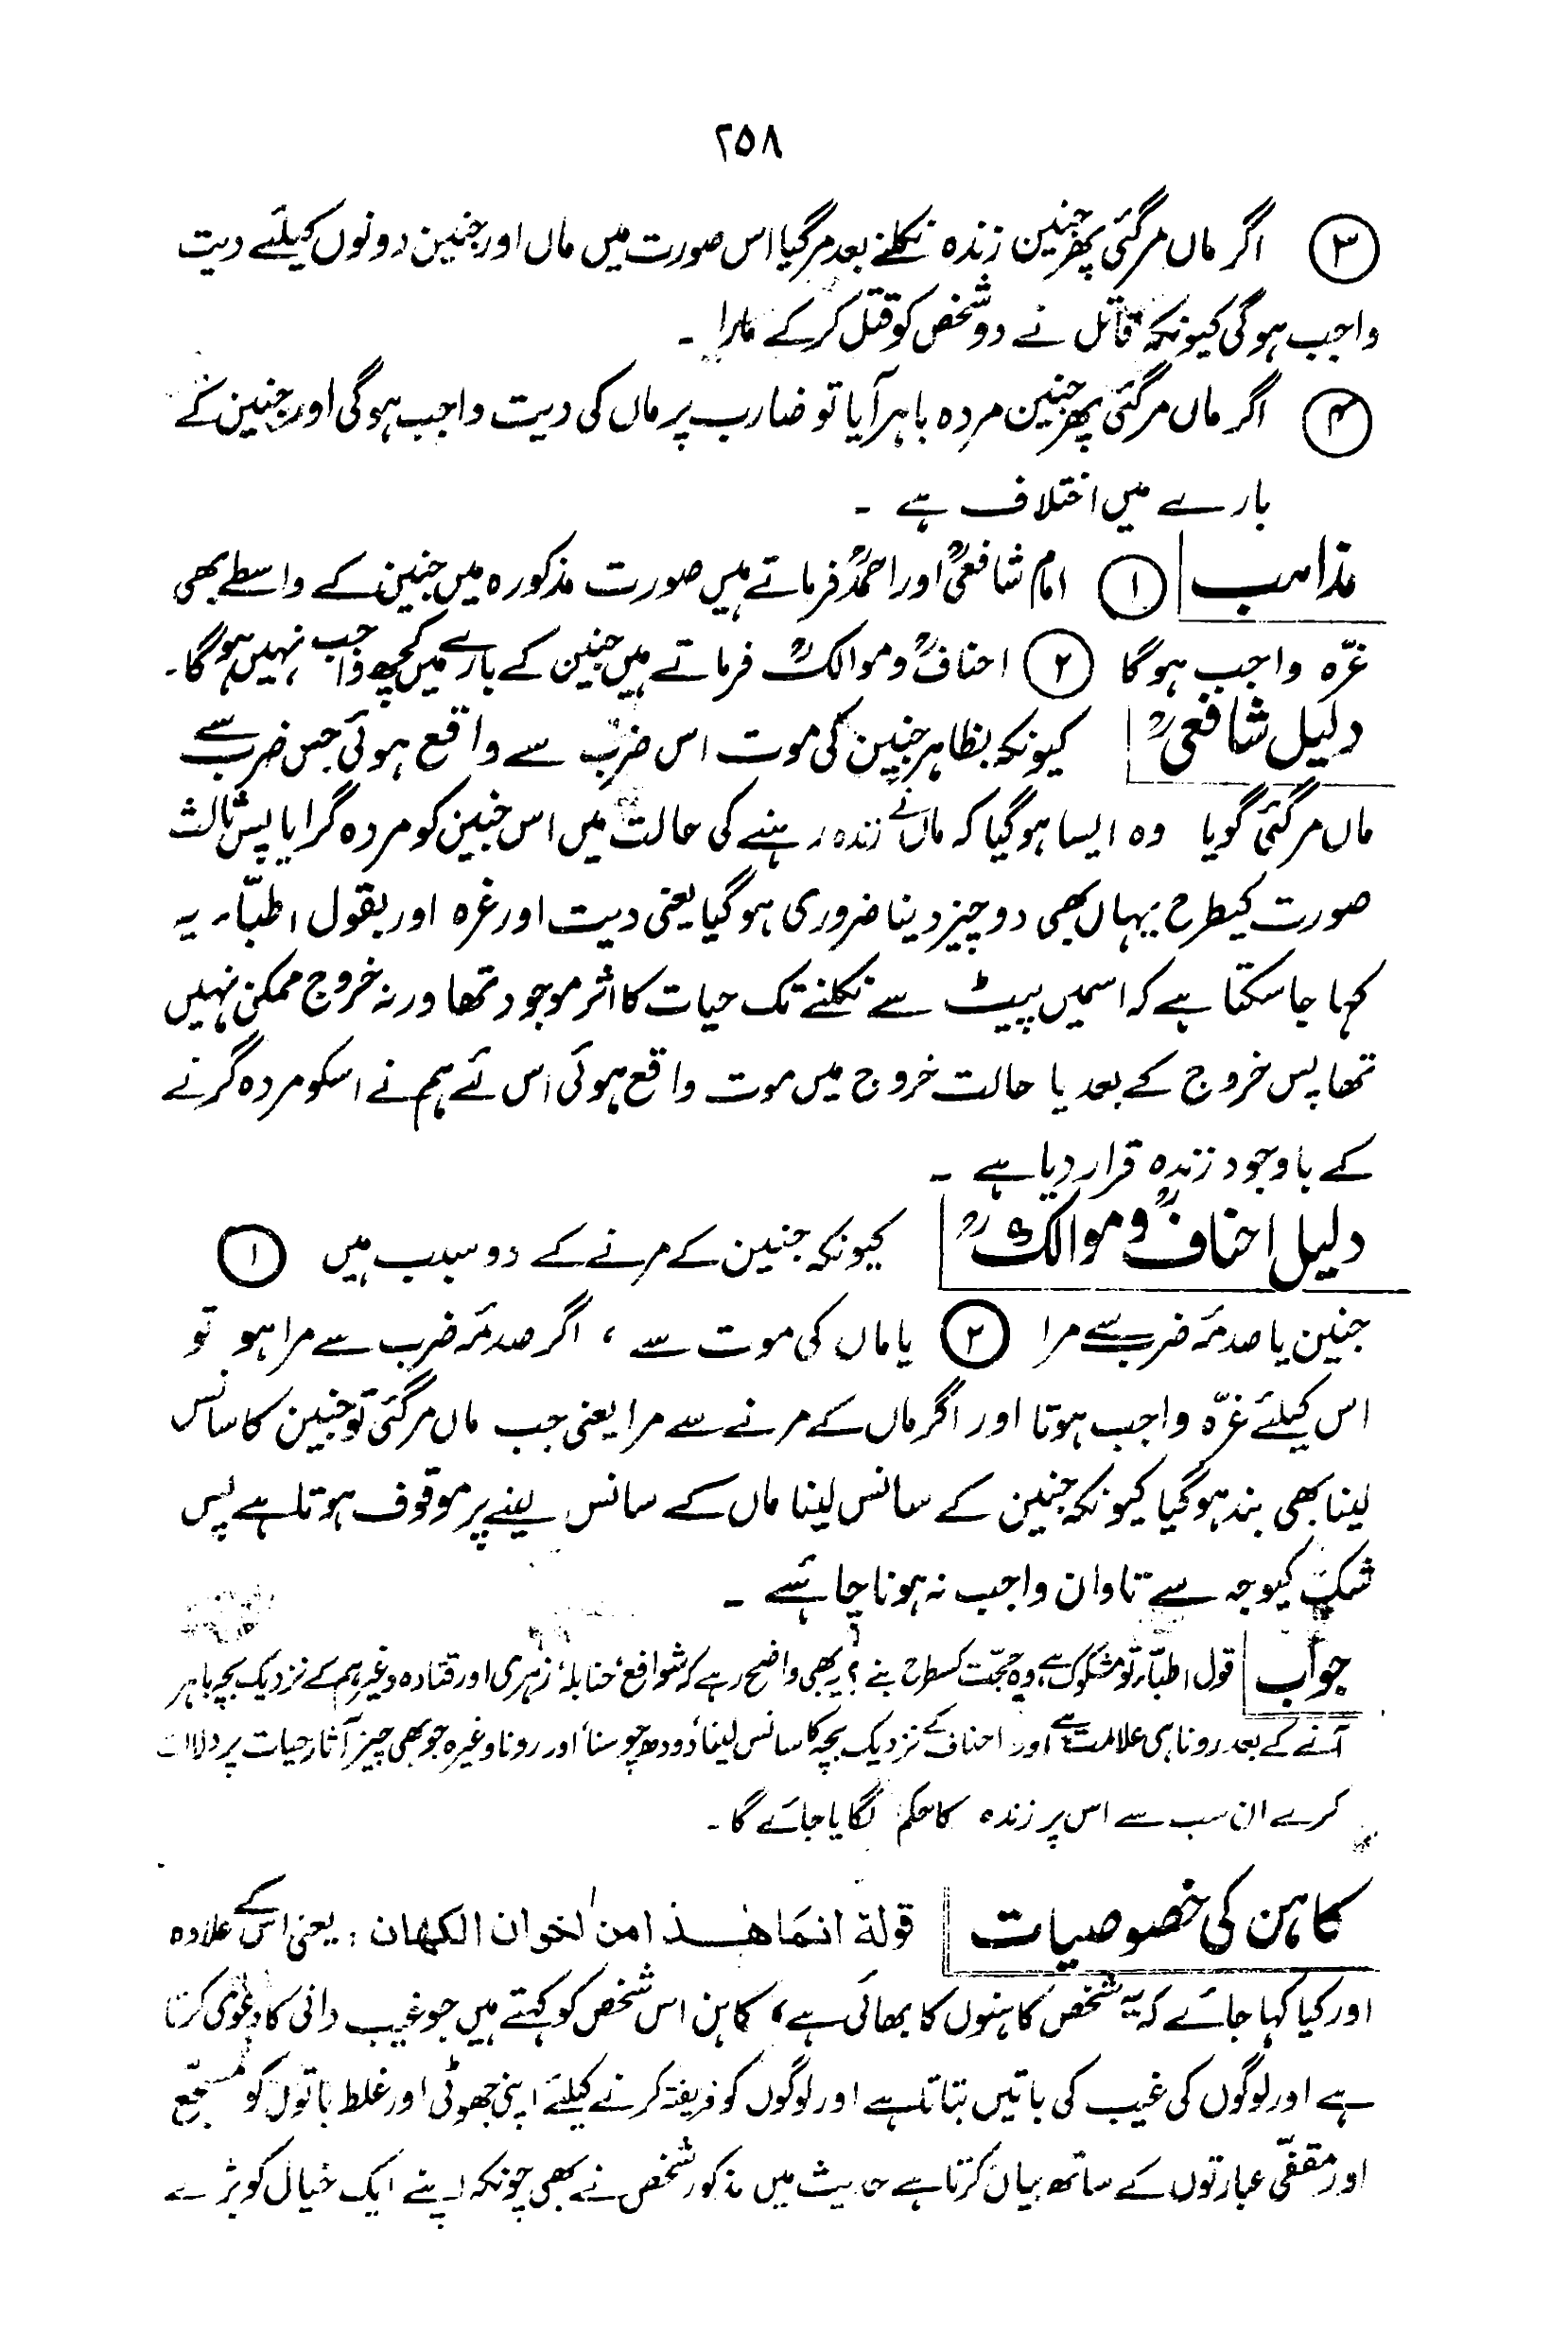 ۲۵۸
③ اگر ماں مرگئی پھر جنین زندہ نکلنے بعد مرگیا اس صورت میں ماں اور جنین دونوں کیلئے دیت
واجب ہوگی کیونکہ قاتل نے دو شخص کو قتل کرکے مارا ۔
④ اگر ماں مرگئی پھر جنین مردہ باہر آیا تو ضارب پر ماں کی دیت واجب ہوگی اور جنین کے
بارے میں اختلاف ہے ۔
مذاہب ① امام شافعیؒ اور احمدؒ فرماتے ہیں صورت مذکورہ میں جنین کے واسطے بھی
غرّہ واجب ہوگا ② احنافؒ وموالکؒ فرماتے ہیں جنین کے بارے میں کچھ واجب نہیں ہوگا۔
دلیل شافعیؒ کیونکہ بظاہر جنین کی موت اس ضرب سے واقع ہوئی جس ضرب سے
ماں مرگئی گویا وہ ایسا ہوگیا کہ ماں نے زندہ رہنے کی حالت میں اس جنین کو مردہ گرایا پس ثالث
صورت کیطرح یہاں بھی دو چیز دینا ضروری ہوگیا یعنی دیت اور غرہ اور بقول اطبّاء یہ
کہا جاسکتا ہے کہ اسمیں پیٹ سے نکلنے تک حیات کا اثر موجود تھا ورنہ خروج ممکن نہیں
تھا پس خروج کے بعد یا حالت خروج میں موت واقع ہوئی اس لئے ہم نے اسکو مردہ گرنے
کے باوجود زندہ قرار دیا ہے ۔
دلیل احنافؒ وموالکؒ کیونکہ جنین کے مرنے کے دو سبب ہیں ①
جنین یا صدمۂ ضرب سے مرا ② یا ماں کی موت سے ، اگر صدمۂ ضرب سے مرا ہو تو
اس کیلئے غرّہ واجب ہوتا اور اگر ماں کے مرنے سے مرا یعنی جب ماں مرگئی تو جنین کا سانس
لینا بھی بند ہوگیا کیونکہ جنین کے سانس لینا ماں کے سانس لینے پر موقوف ہوتا ہے پس
شک کیوجہ سے تاوان واجب نہ ہونا چاہئے ۔
جواب قول اطبّاء تو مشکوک ہے وہ حجّت کسطرح بنے ؟ یہ بھی واضح رہے کہ شوافع، حنابلہ، زہری اور قتادہ وغیرہم کے نزدیک بچہ باہر
آنے کے بعد رونا ہی علامت ہے اور احناف کے نزدیک بچہ کا سانس لینا، دودھ چوسنا، اور رونا وغیرہ جو بھی چیز آثار حیات پر دلالت
کرے ان سب سے اس پر زندہ کا حکم لگایا جائے گا۔
کاہن کی خصوصیات قولہ انما ھذا من اخوان الکھان : یعنی اس کے علاوہ
اور کیا کہا جائے کہ یہ شخص کاہنوں کا بھائی ہے، کاہن اس شخص کو کہتے ہیں جو غیب دانی کا دعوی کرتا
ہے اور لوگوں کی غیب کی باتیں بتاتا ہے اور لوگوں کو فریفتہ کرنے کیلئے اپنی جھوٹی اور غلط باتوں کو مسجّع
اور مقفّی عبارتوں کے ساتھ بیان کرتا ہے حدیث میں مذکور شخص نے بھی چونکہ اپنے ایک خیال کو بڑے